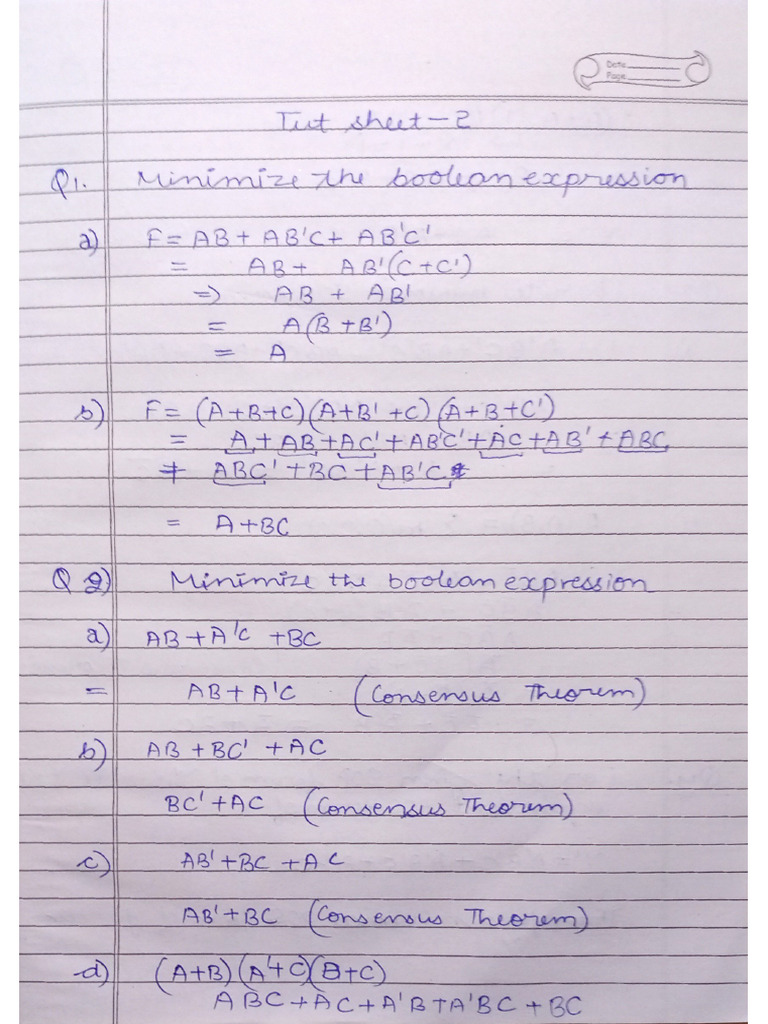 Date
Page
Tut sheet-2
Q1. Minimize the boolean expression
a) F = AB + AB'C + AB'C'
= AB + AB'(C+C')
=> AB + AB'
= A(B+B')
= A
b) F = (A+B+C)(A+B'+C)(A+B+C')
= A + AB + AC' + AB'C' + AC + AB' + ABC
+ ABC' + BC + AB'C
= A+BC
Q 2) Minimize the boolean expression
a) AB + A'C + BC
= AB + A'C (Consensus Theorem)
b) AB + BC' + AC
BC' + AC (Consensus Theorem)
c) AB' + BC + AC
AB' + BC (Consensus Theorem)
d) (A+B)(A'+C)(B+C)
ABC + AC + A'B + A'BC + BC